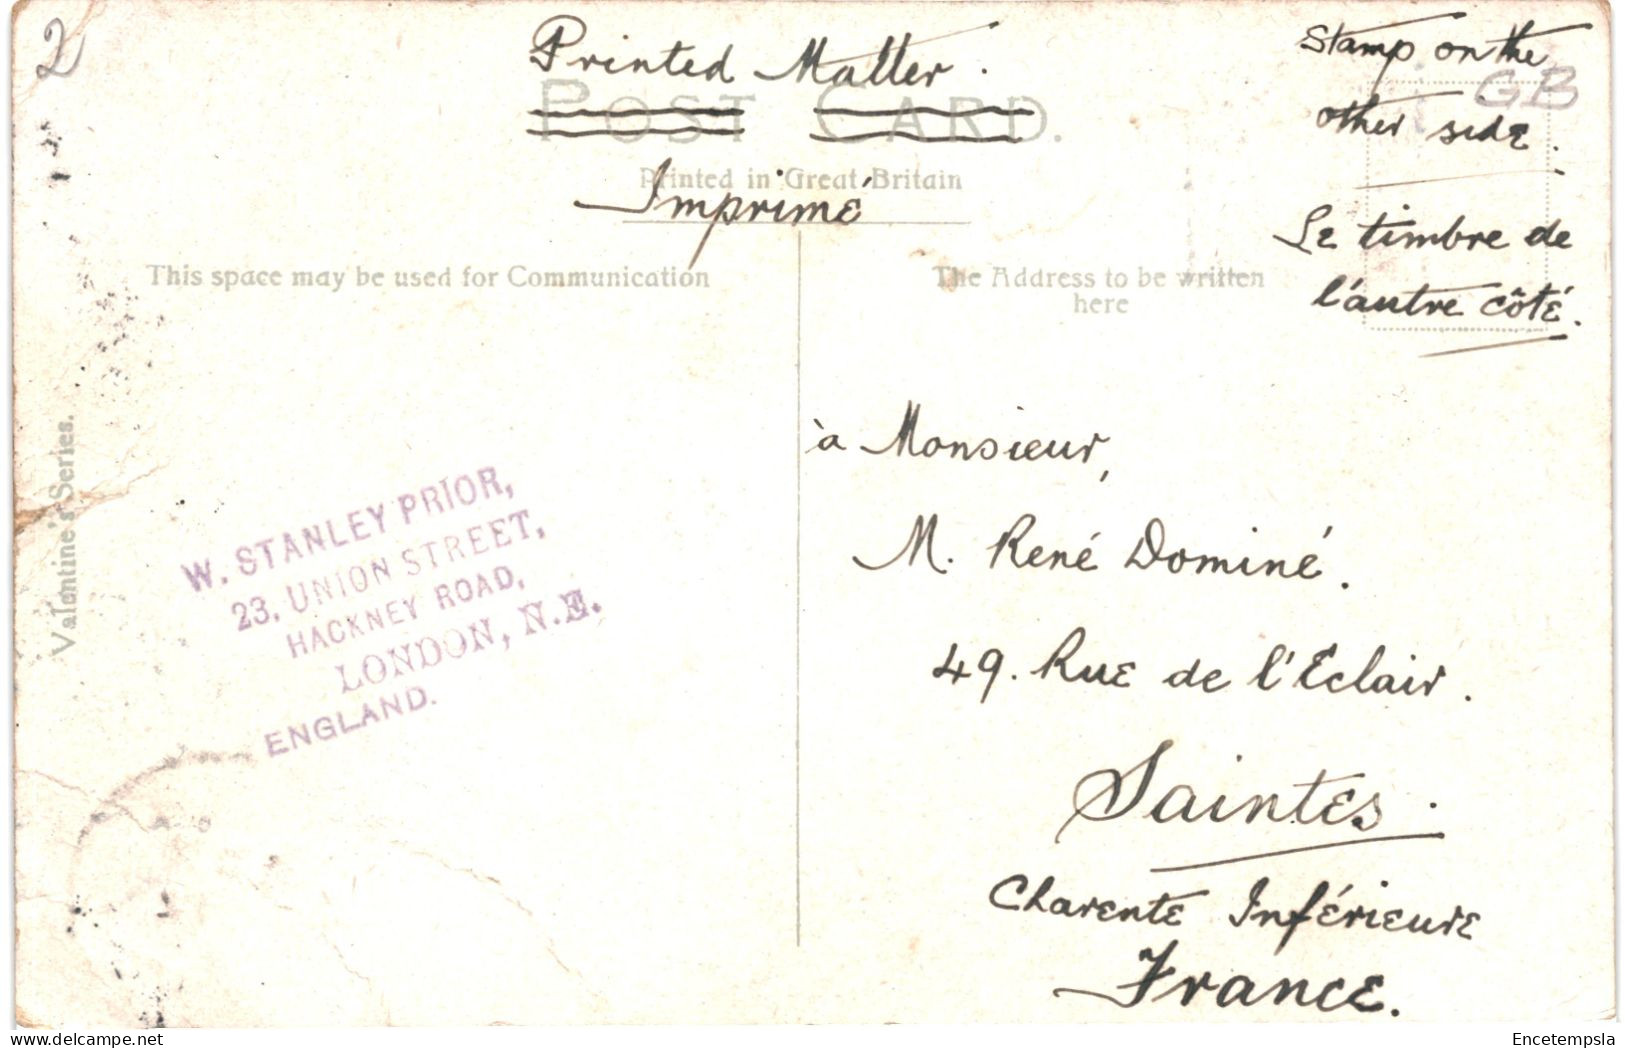 2
Printed Matter.
POST CARD.
Printed in Great Britain
Imprimé
Stamp on the
GB
other side.
Le timbre de
l'autre côté.
This space may be used for Communication
The Address to be written
here
Valentine's Series.
W. STANLEY PRIOR,
23, UNION STREET,
HACKNEY ROAD,
LONDON, N.E.
ENGLAND.
à Monsieur,
M. René Dominé.
49. Rue de l'Eclair.
Saintes.
Charente Inférieure
France.
Encetempsla